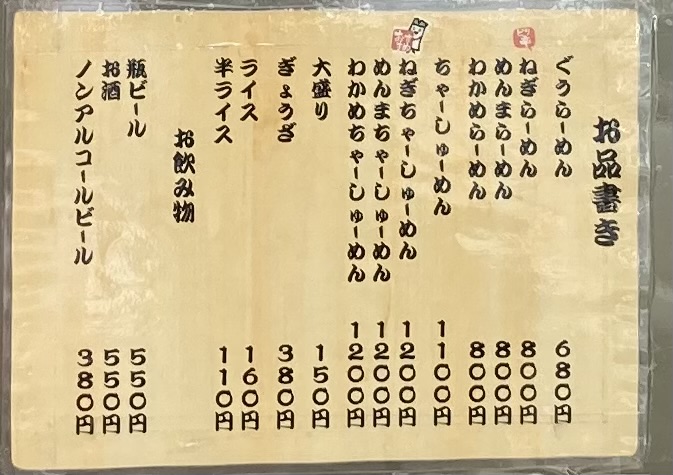 お品書き
ぐうらーめん 680円
ねぎらーめん 800円
めんまらーめん 800円
わかめらーめん 800円
ちゃーしゅーめん 1100円
ねぎちゃーしゅーめん 1200円
めんまちゃーしゅーめん 1200円
わかめちゃーしゅーめん 1200円
大盛り 150円
ぎょうざ 380円
ライス 160円
半ライス 110円
お飲み物
瓶ビール 550円
お酒 550円
ノンアルコールビール 380円